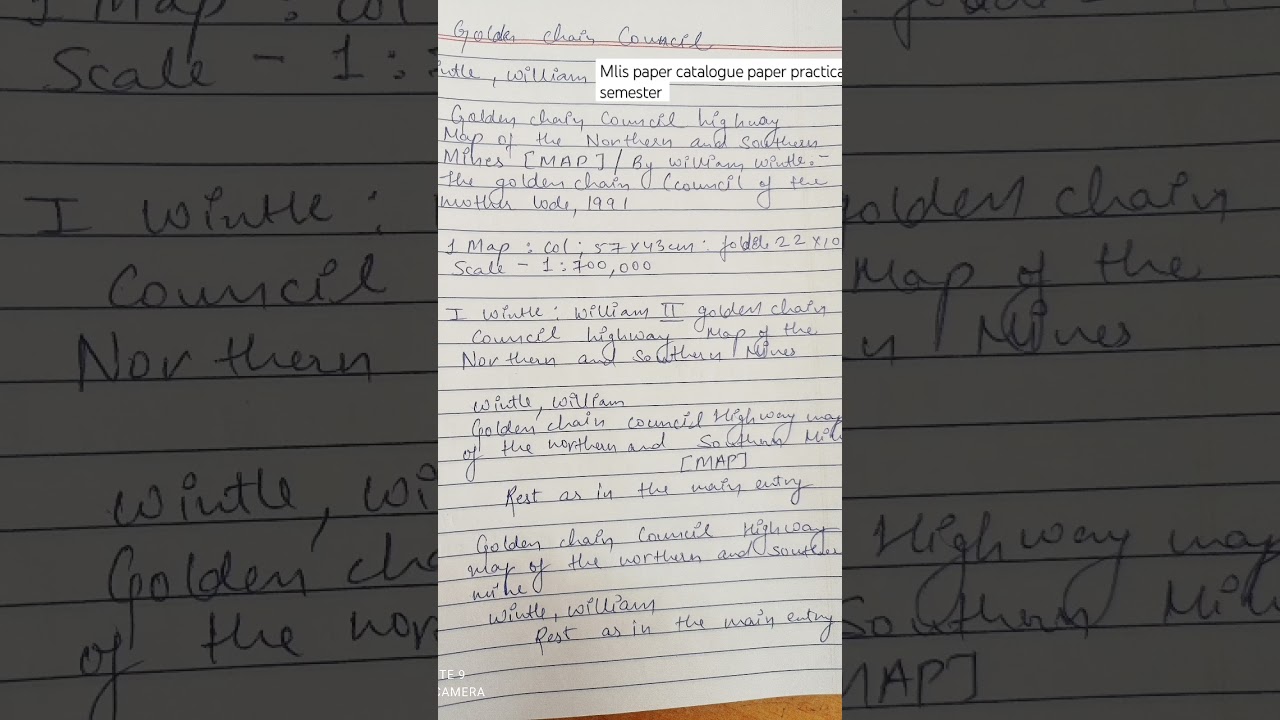 Golden chain Council
intle, william
Mlis paper catalogue paper practica
semester
Golden chain Council highway
Map of the Northern and Southern
Mines [MAP] / By william wintle.-
The golden chain Council of the
mother lode, 1991
1 Map : Col ; 57 x 43 cm : folde 22 x 10
Scale - 1:700,000
I wintle : william II golden chain
Council highway Map of the
Northern and Southern Mines
wintle, william
Golden chain council Highway map
of the northern and Southern Min
[MAP]
Rest as in the main entry
Golden chain Council Highway
map of the northern and southern
mine
wintle, william
Rest as in the main entry
TE 9
CAMERA